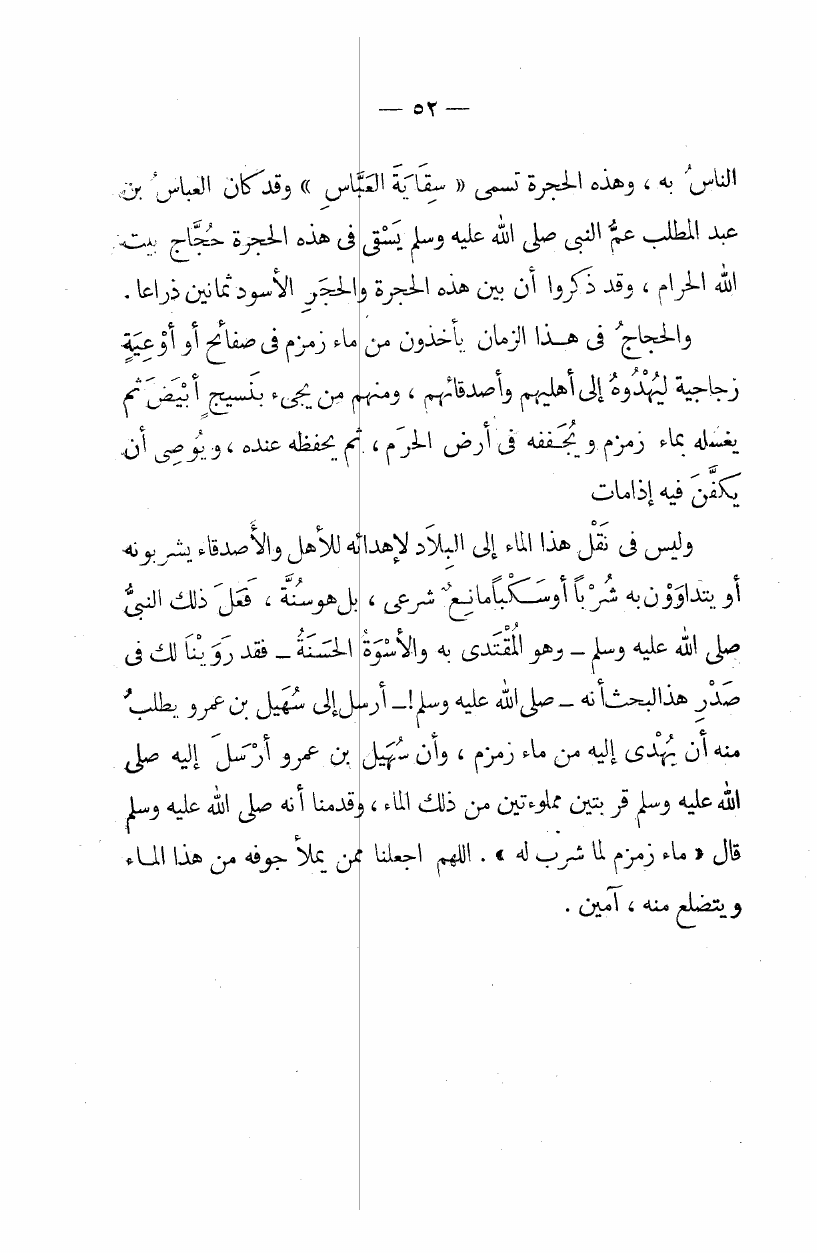 — ٥٢ —
الناسُ به ، وهذه الحجرة تسمى « سِقَايَةَ العَبَّاسِ » وقد كان العباسُ بن
عبد المطلب عمُّ النبى صلى الله عليه وسلم يَسْقِى فى هذه الحجرة حُجَّاج بيت
الله الحرام ، وقد ذكروا أن بين هذه الحجرة والحجَرِ الأسود ثمانين ذراعا .
والحجاجُ فى هـذا الزمان يأخذون من ماء زمزم فى صفائح أو أوْعِيَةٍ
زجاجية ليُهْدُوهُ إلى أهليهم وأصدقائهم ، ومنهم مِن يجىء بنَسيجٍ أبْيَضَ ثم
يغسله بماء زمزم ويُجَـففه فى أرض الحرَم ، ثم يحفظه عنده ، ويُوصِى أن
يكفَّنَ فيه إذامات
وليس فى نَقْلِ هذا الماء إلى البِلَاد لإهدائه للأهل والأَصدقاء يشربونه
أو يتداوَوْن به شُرْباً أوسَـكْباًمانِعٌ شرعى ، بل هو سُنَّة ، فَعَلَ ذلك النبىُّ
صلى الله عليه وسلم – وهو المُقْتَدى به والأسْوَةُ الحَسَنَةُ – فقد رَوَيْنَا لك فى
صَدْرِ هذالبحث أنه – صلى الله عليه وسلم !– أرسل إلى سُهَيل بن عمرو يطلبُ
منه أن يُهْدى إليه من ماء زمزم ، وأن سُهَيل بن عمرو أرْسَلَ إليه صلى
الله عليه وسلم قربتين مملوءتين من ذلك الماء ، وقدمنا أنه صلى الله عليه وسلم
قال « ماء زمزم لما شرب له » . اللهم اجعلنا ممن يملأ جوفه من هذا المـاء
ويتضلع منه ، آمين .